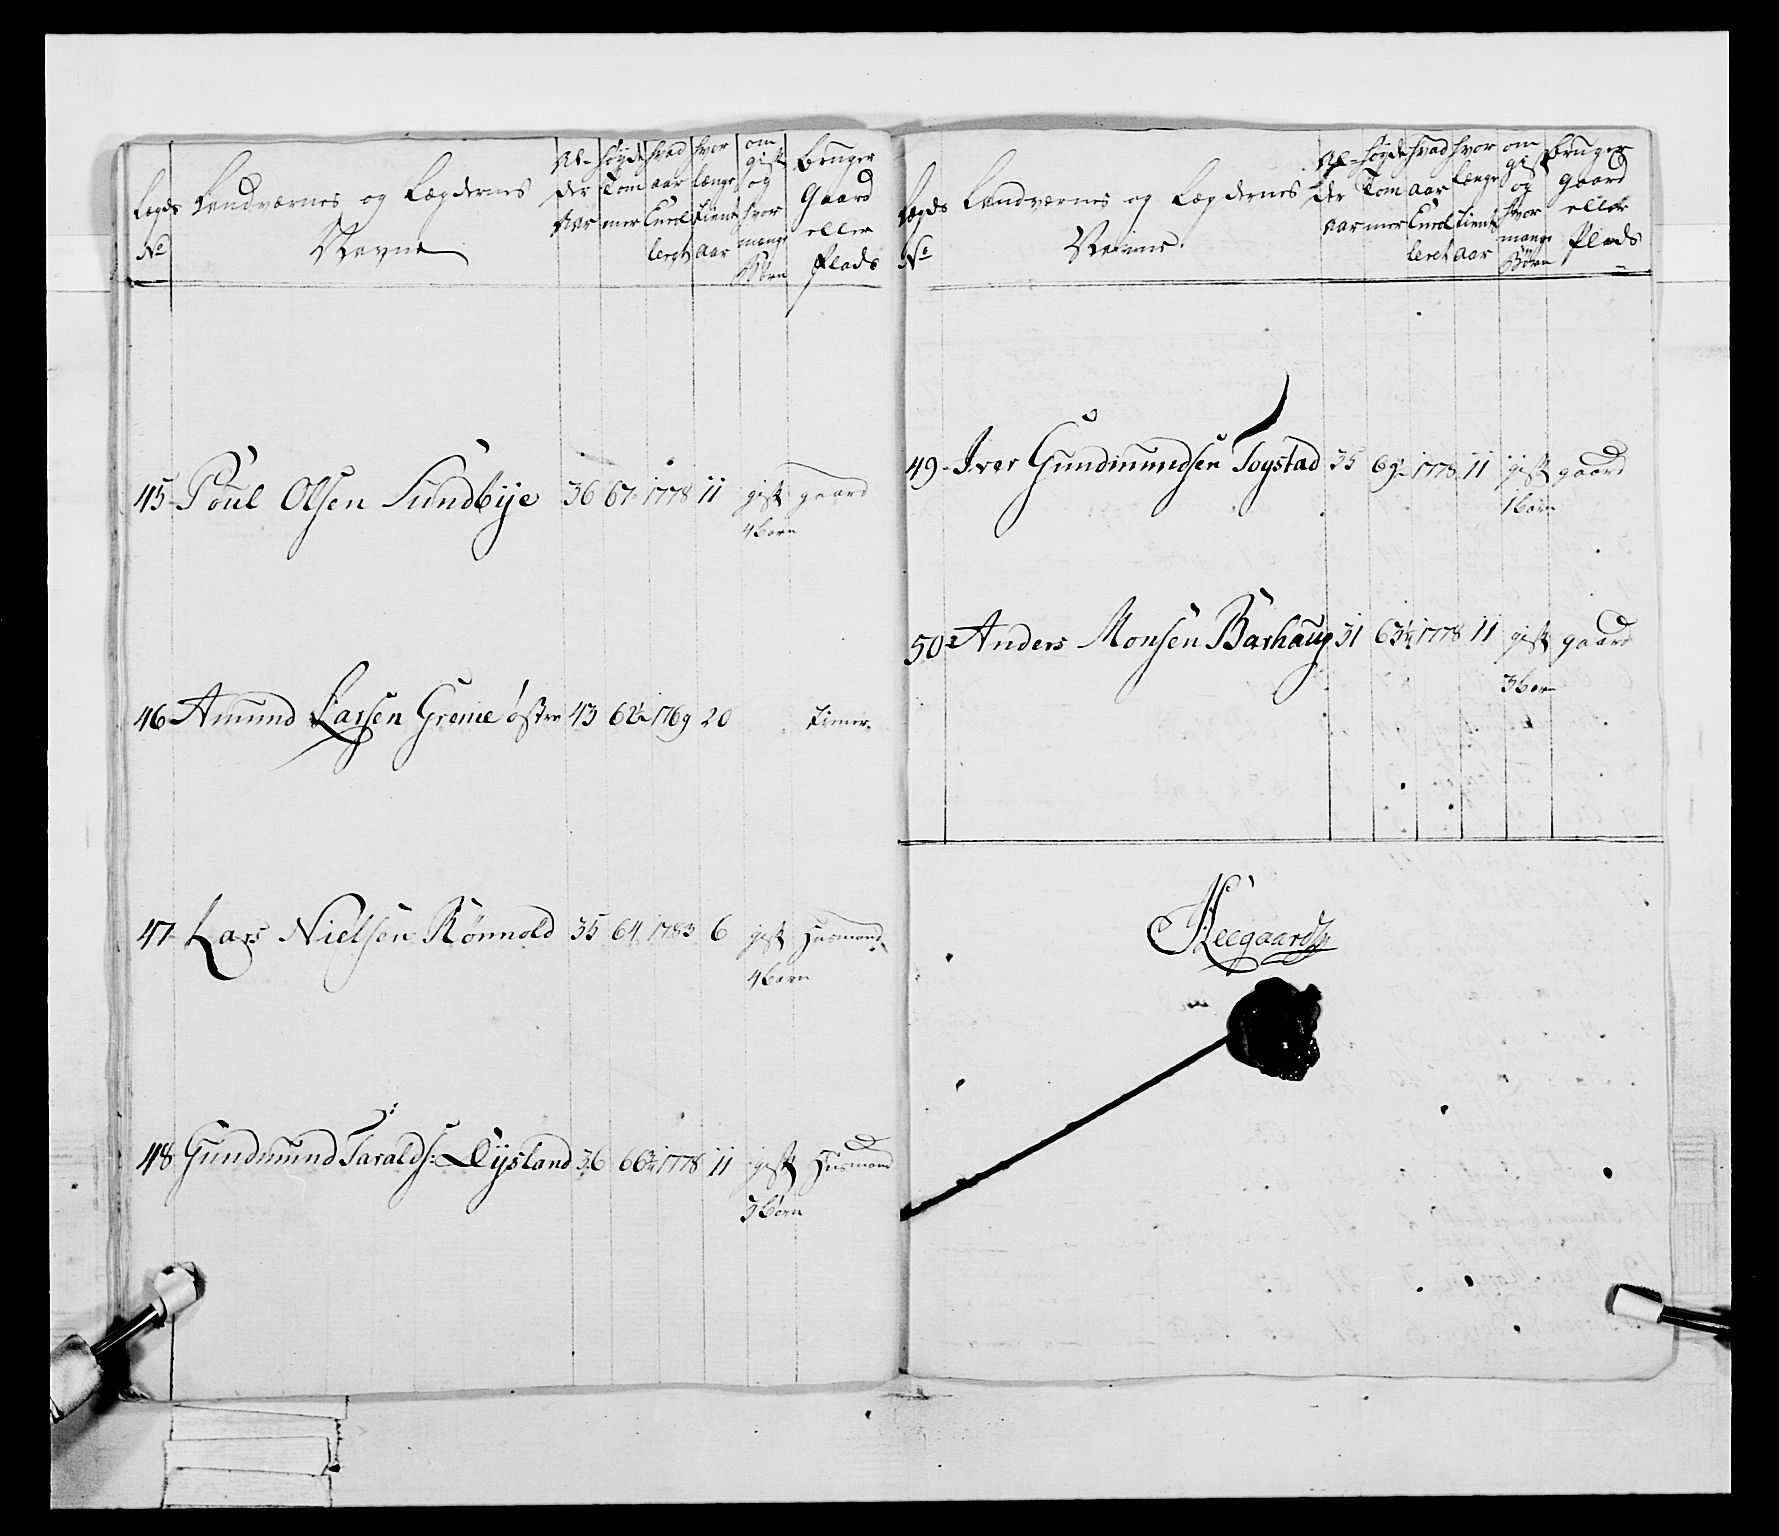 Lægds No | Landværnes og Lægdernes Navne | Al-der Aar | høyde Tommer | hvad aar Enrolleret | hvor længe tient aar | om gift og hvor mange Børn | bruger Gaard eller Plads
45 Poul Olsen Sundbye 36 67 1778 11 gift gaard
4 børn
46 Amund Larsen Greme østre 43 62½ 1769 20 timer
47 Lars Nielsen Rönnold 35 64 1783 6 gift Husmand
4 børn
48 Gundmund Taralds: Dysland 36 66¾ 1778 11 gift Husmand
3 børn
Lægds No | Landværnes og Lægdernes Navne | Al-der Aar | høyde Tommer | hvad Aar Enrolleret | hvor længe tient aar | om gift og hvor mange Børn | bruger gaard eller Plads
49 Iver Gundmundsen Togstad 35 69½ 1778 11 gift gaard
1 børn
50 Anders Monsen Barhaug 31 63¼ 1778 11 gift gaard
3 børn